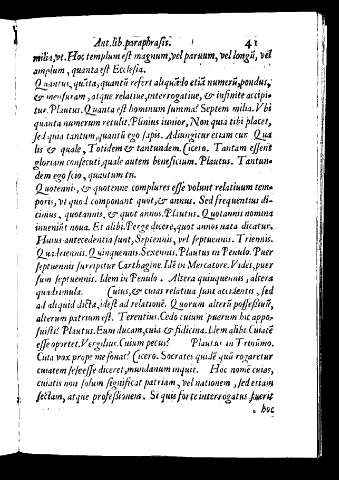 Ant. lib. paraphrasis. 41
milia, vt. Hoc templum est magnum, vel paruum, vel longũ, vel
amplum, quanta est Ecclesia.
Quantus, quãta, quantũ refert aliquãdo etiã numerũ, pondus,
& mensuram, atque relatiue, interrogatiue, & infinite accipi-
tur. Plautus. Quanta est hominum summa? Septem milia. Vbi
quanta numerum retulit. Plinius iunior, Non quia tibi placet,
sed quia tantum, quantũ ego sapis. Adiungitur etiam cur. Qua
lis & quale, Totidem & tantundem. Cicero. Tantam essent
gloriam consecuti, quale autem beneficium. Plautus. Tantun-
dem ego scio, quantum tu.
Quotennis, & quotenne complures esse volunt relatiuum tem-
poris, vt quod componant quot, & annus. Sed frequentius di-
cimus, quotannis, & quot annos. Plautus. Quotannis nomina
inueniũt noua. Et alibi. Perge dicere, quot annos nata dicatur.
Huius antecedentia sunt, Septennis, vel septuennis. Triennis.
Quadriennis. Quinquennis. Sexennis. Plautus in Penulo. Puer
septuennis surripitur Carthagine. Idẽ in Mercatore. Videt, puer
sum septuennis. Idem in Penulo. Altera quinquennis, altera
quadrimula. Cuius, & cuias relatiua sunt accidentis, sed
ad aliquid dicta, idest ad relationẽ. Quorum alterũ possessiuũ,
alterum patrium est. Terentius. Cedo cuium puerum hic appo-
suisti? Plautus. Eum ducam, cuia & fidicina. Idem alibi. Cuiatẽ
esse oportet. Vergilius. Cuium pecus? Plautus in Trinũmo.
Cuia vox prope me sonat? Cicero. Socrates quidẽ quũ rogaretur
cuiatem sese esse diceret, mundanum inquit. Hoc nomẽ cuias,
cuiatis non solum significat patriam, vel nationem, sed etiam
sectam, atque professionem. Si quis forte interrogatus fuerit
hoc